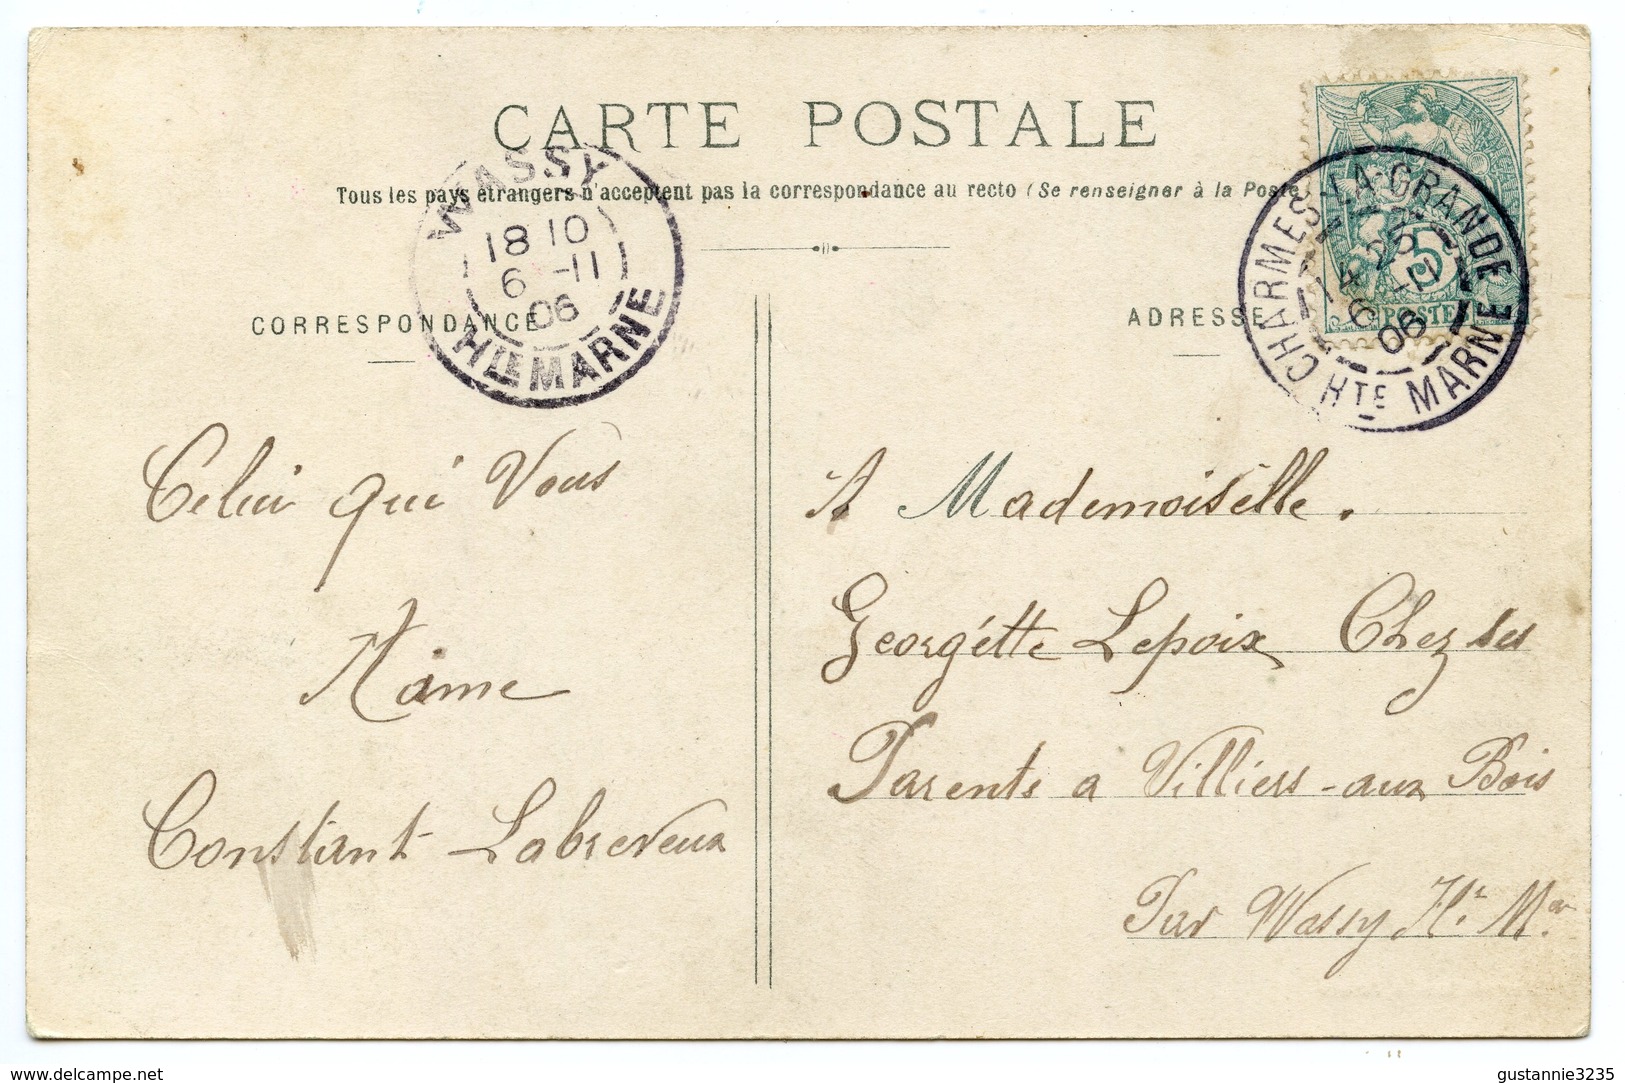 CARTE POSTALE
Tous les pays étrangers n'acceptent pas la correspondance au recto (Se renseigner à la Poste
WASSY
18 10
6 -11
06
HTE MARNE
CHARMES-LA-GRANDE
14 25
6 -11
06
HTE MARNE
5
POSTE
CORRESPONDANCE
ADRESSE
Celui qui Vous
Aime
Constant Labreveux
A Mademoisélle.
Georgétte Lepoix Chez ses
Parents a Villiers-aux Bois
Par Wassy Hte Mar
www.delcampe.net
gustannie3235